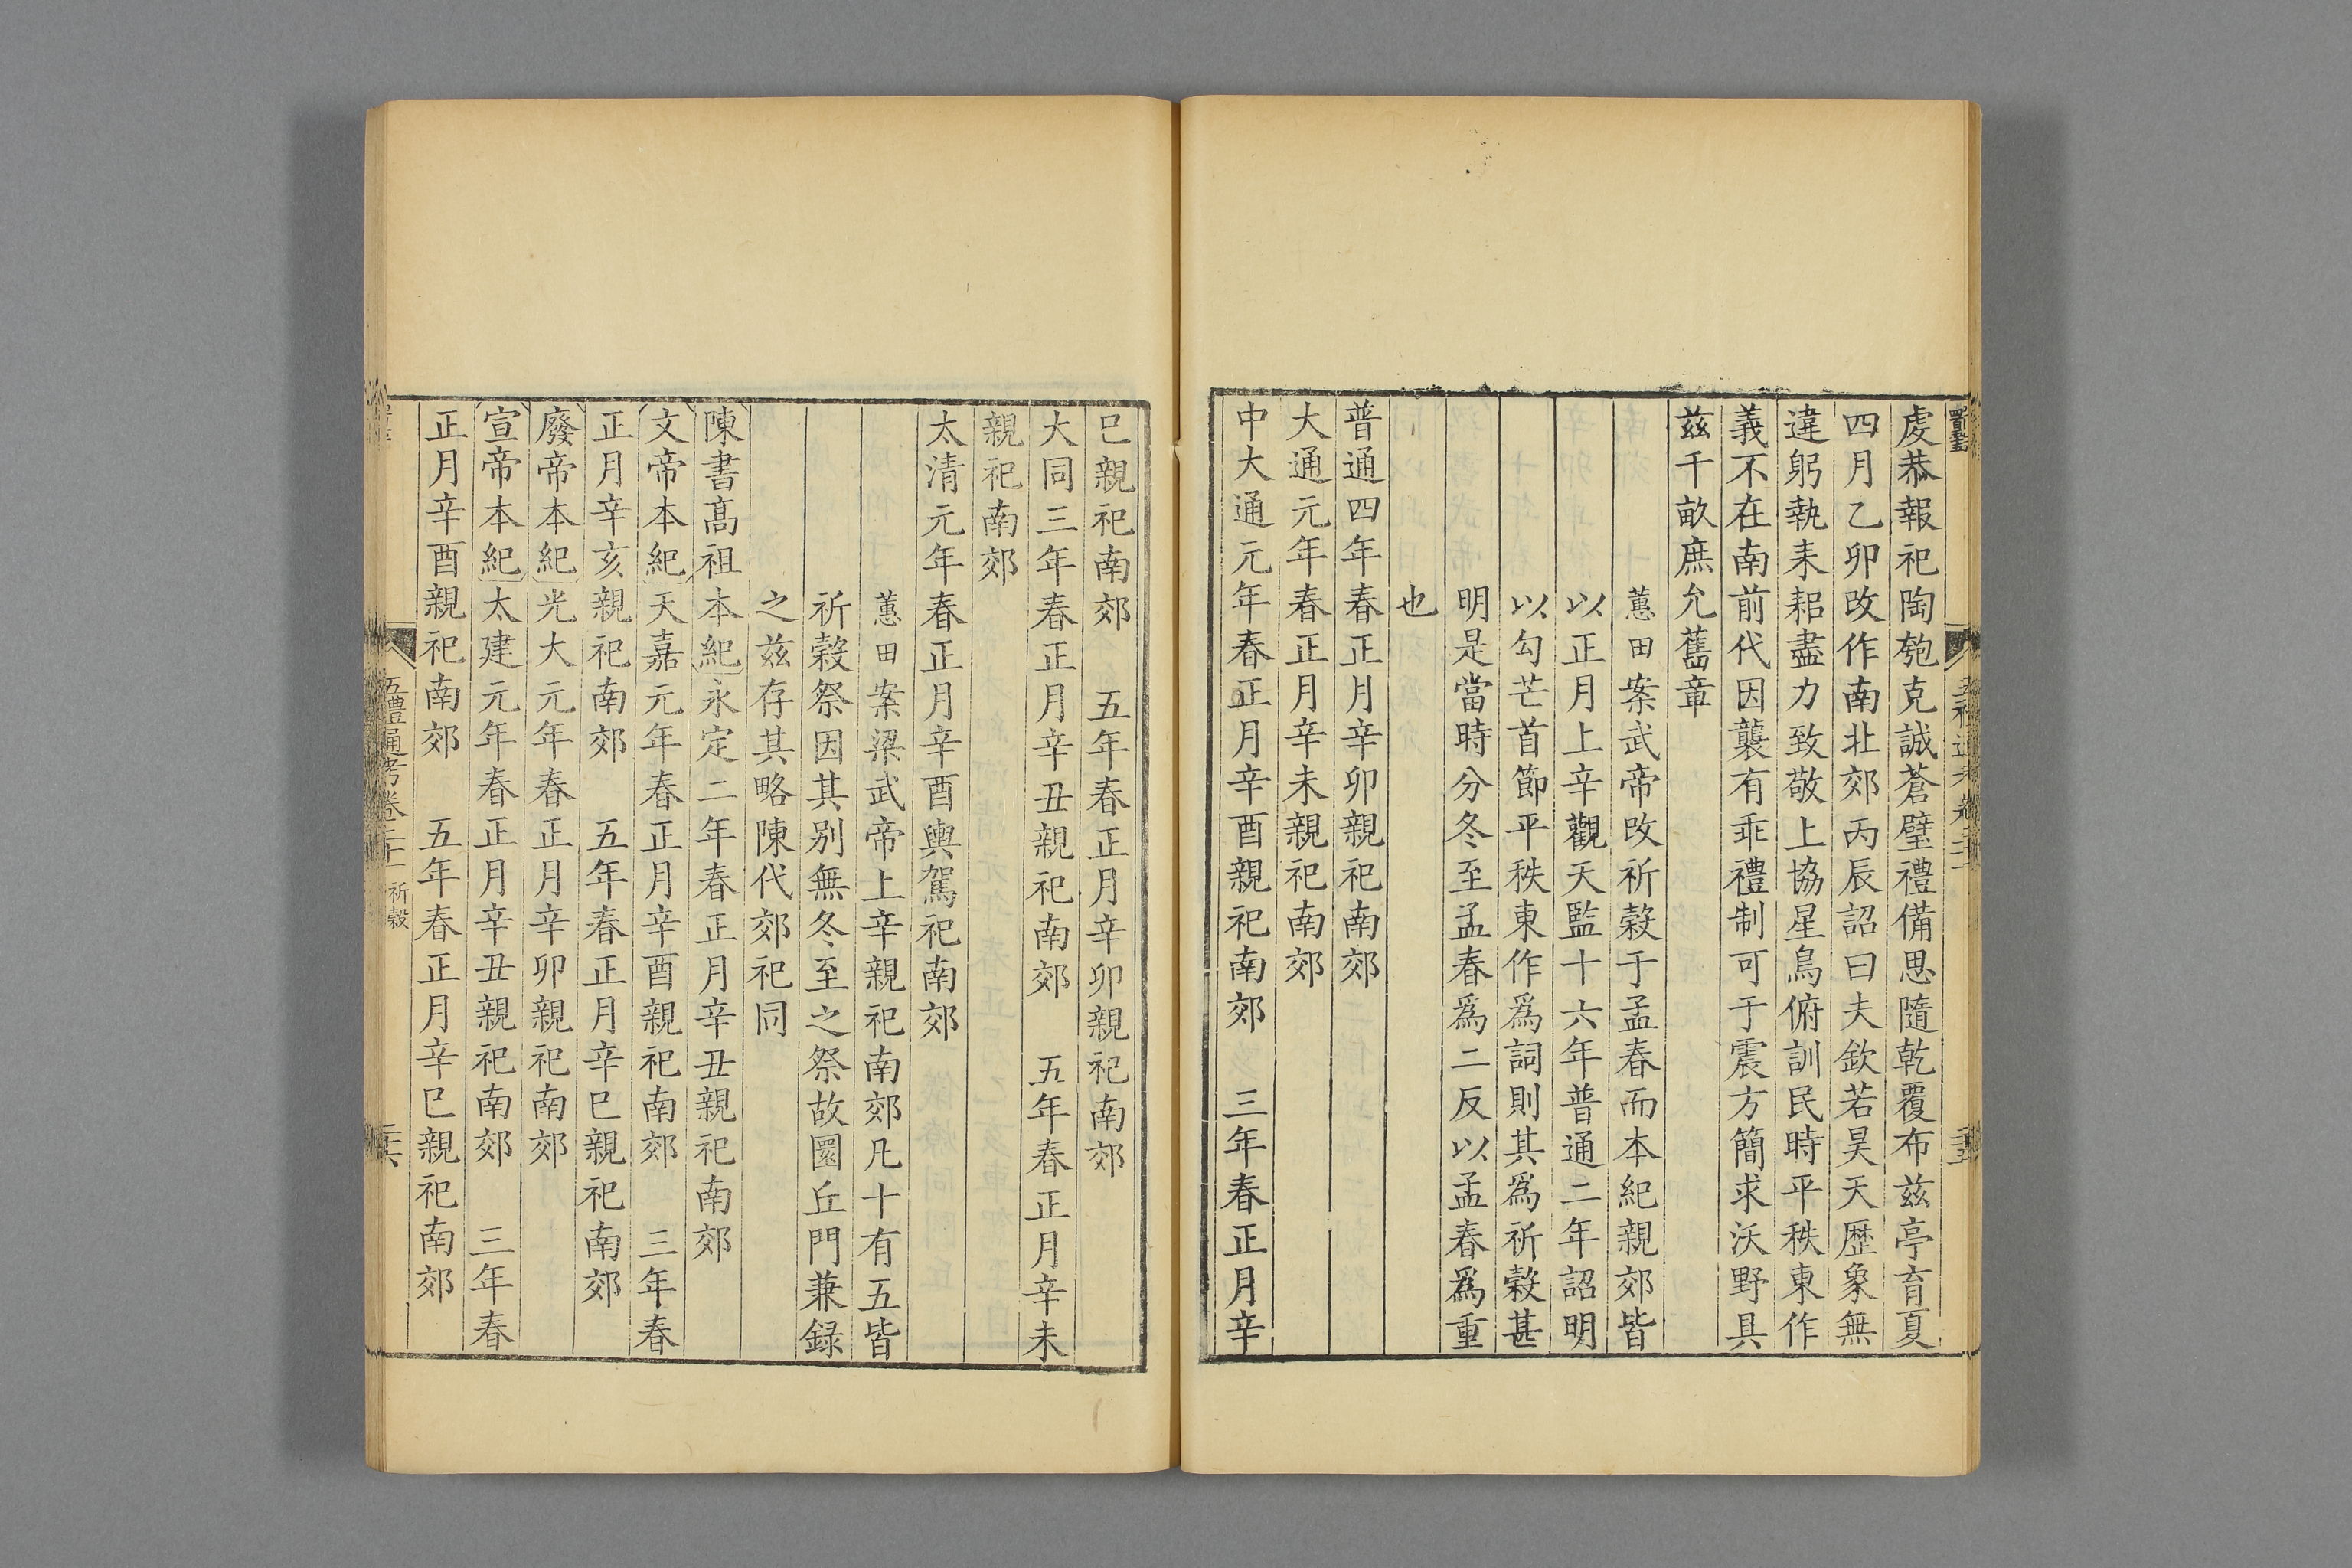 虔恭報祀陶匏克誠蒼璧禮備思隨乾覆布兹亭育夏
四月乙卯改作南北郊丙辰詔曰夫欽若昊天歷象無
違躬執耒耜盡力致敬上協星鳥俯訓民時平秩東作
義不在南前代因襲有乖禮制可于震方簡求沃野具
兹千畝庶允舊章
蕙田案武帝改祈穀于孟春而本紀親郊皆
以正月上辛觀天監十六年普通二年詔明
以勾芒首節平秩東作爲詞則其爲祈穀甚
明是當時分冬至孟春爲二反以孟春爲重
也
普通四年春正月辛卯親祀南郊
大通元年春正月辛未親祀南郊
中大通元年春正月辛酉親祀南郊　三年春正月辛
巳親祀南郊　五年春正月辛卯親祀南郊
大同三年春正月辛丑親祀南郊　五年春正月辛未
親祀南郊
太清元年春正月辛酉輿駕祀南郊
蕙田案梁武帝上辛親祀南郊凡十有五皆
祈穀祭因其别無冬至之祭故圜丘門兼録
之兹存其略陳代郊祀同
陳書髙祖本紀永定二年春正月辛丑親祀南郊
文帝本紀天嘉元年春正月辛酉親祀南郊　三年春
正月辛亥親祀南郊　五年春正月辛巳親祀南郊
廢帝本紀光大元年春正月辛卯親祀南郊
宣帝本紀太建元年春正月辛丑親祀南郊　三年春
正月辛酉親祀南郊　五年春正月辛巳親祀南郊
五禮通考卷二十一 祈穀